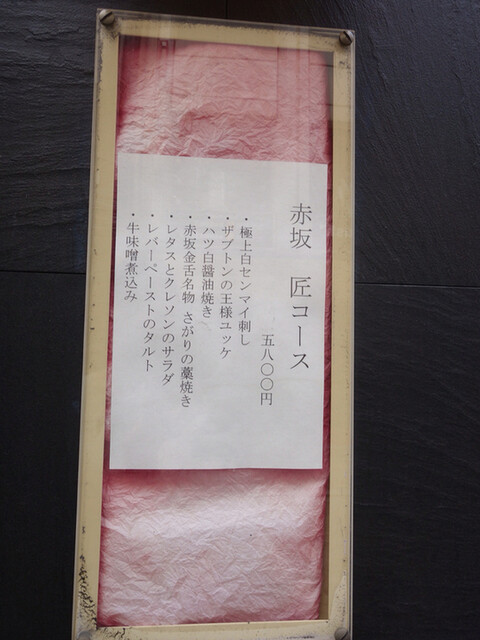 赤坂　匠コース
五八〇〇円
・極上白センマイ刺し
・ザブトンの王様ユッケ
・ハツ白醤油焼き
・赤坂金舌名物 さがりの藁焼き
・レタスとクレソンのサラダ
・レバーペーストのタルト
・牛味噌煮込み